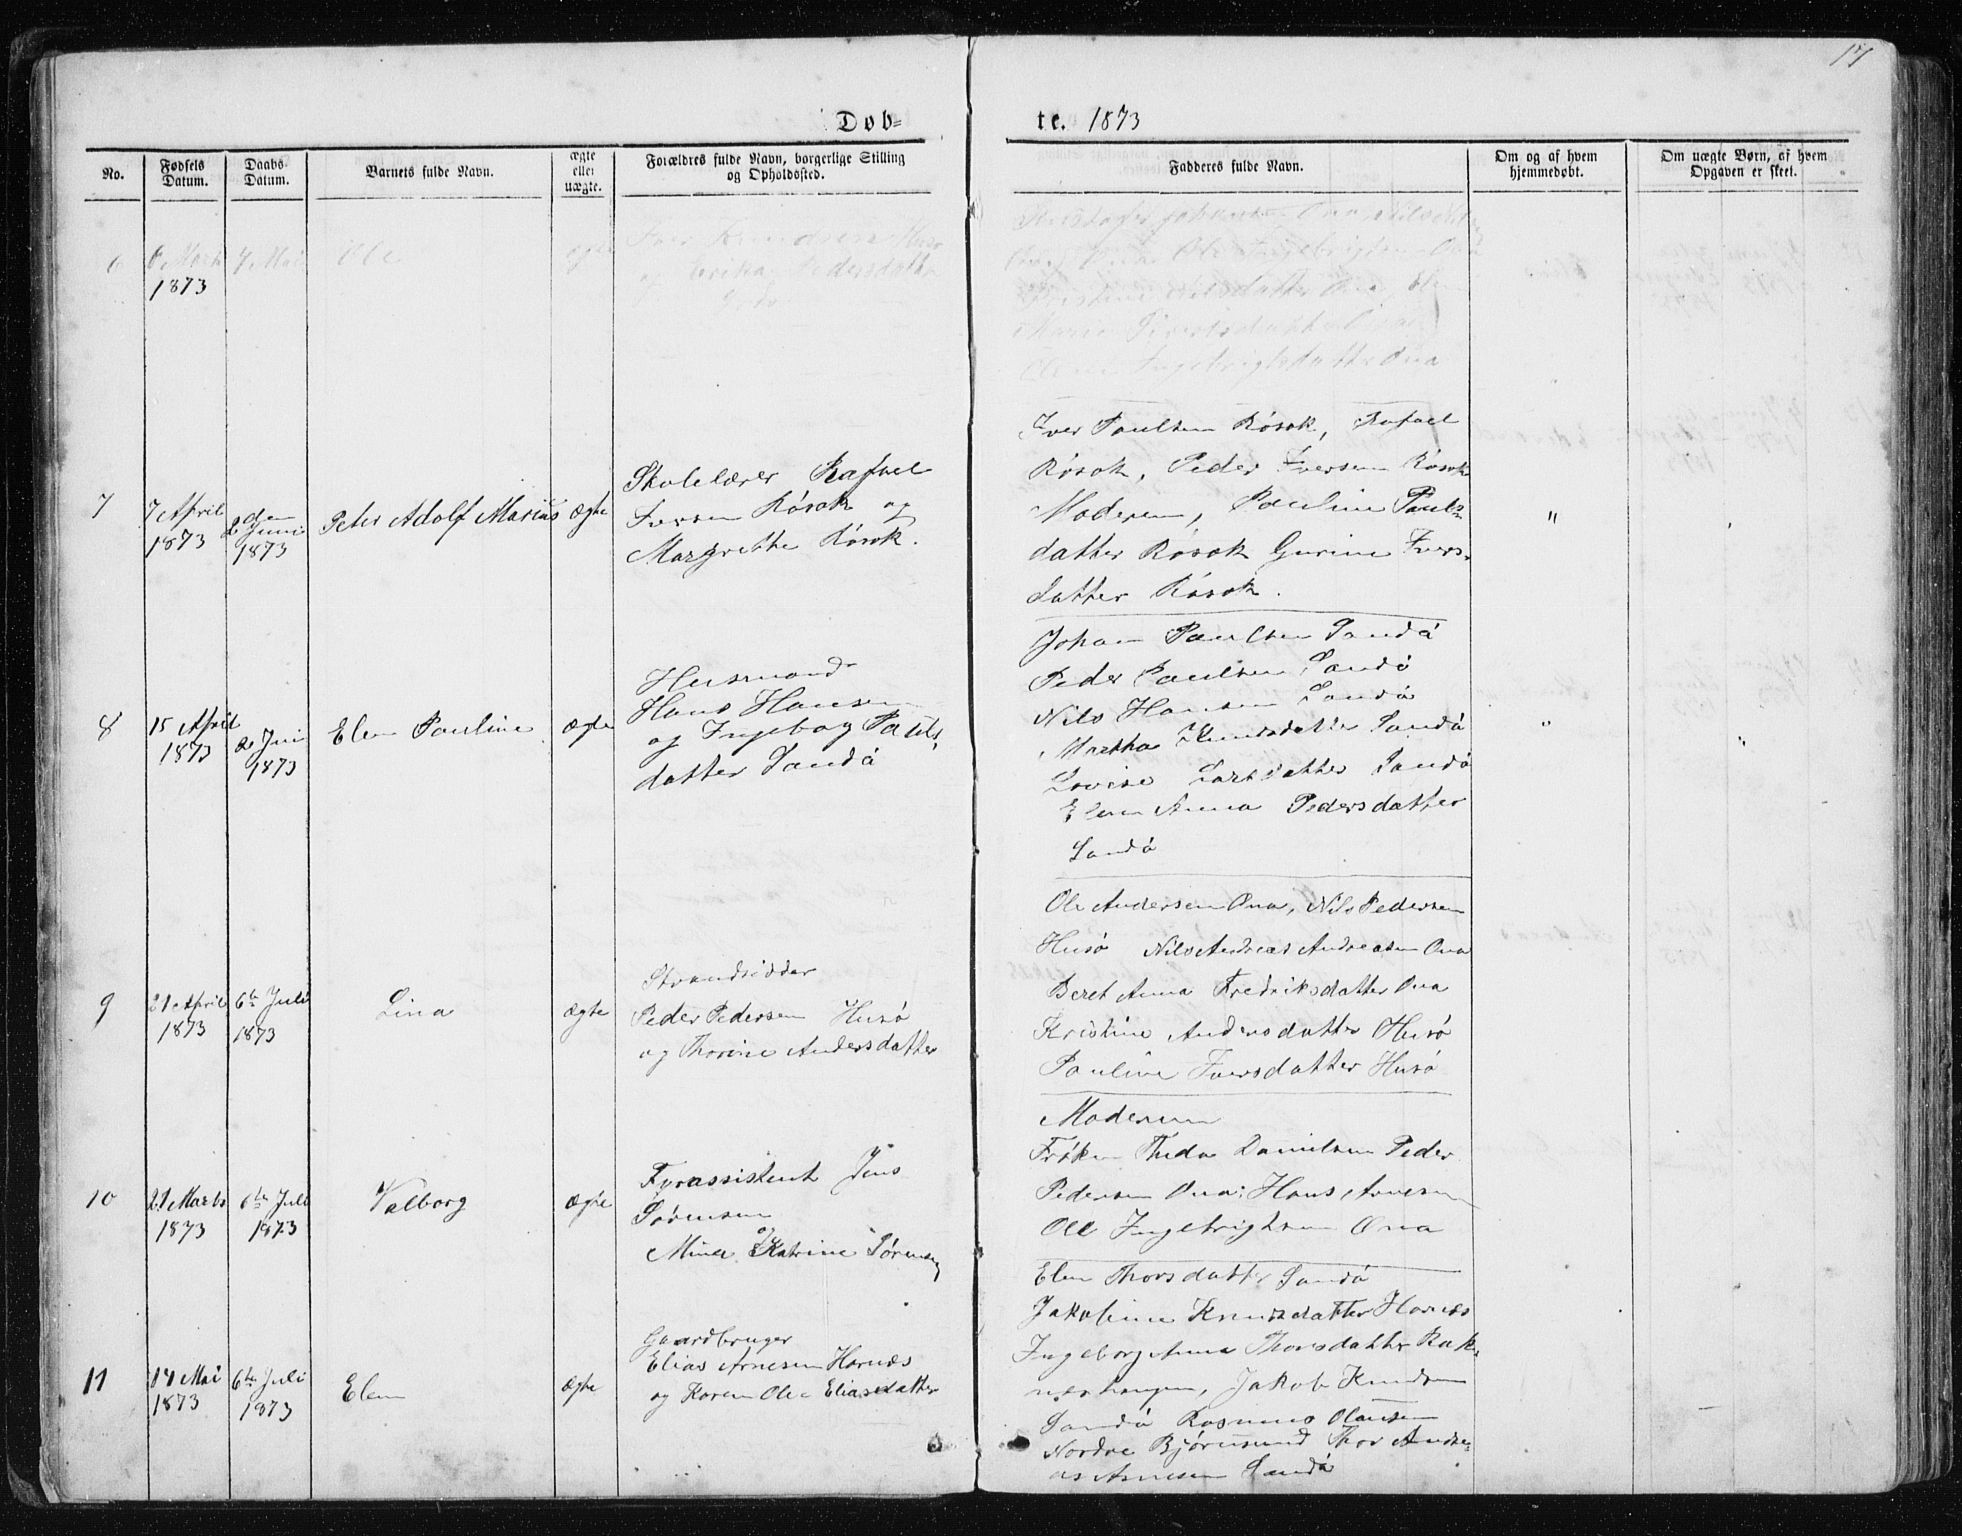 17
Døb-
te. 1873
No.
Fødsels Datum.
Daabs Datum.
Barnets fulde Navn.
ægte eller uægte.
Forældres fulde Navn, borgerlige Stilling og Opholdssted.
Fadderes fulde Navn.
Om og af hvem hjemmedøbt.
Om uægte Børn, af hvem Opgaven er skeet.
6
1873
Ole
ægte
Iver Knudsen Husø
og Pedersdatter
Ole Ingebrigtsen Ona
Nilsdatter Ona, Elen
Ingebrigtsdatter Ona
7
7 April
1873
2den Juni
1873
Peter Adolf Marius
ægte
Skolelærer Rafael
Iversen Røsok og
Margrethe Røsok.
Iver Paulsen Røsok, Rafael
Røsok, Peder Iversen Røsok
Moderen, Pauline Pauls-
datter Røsok Gurine Ivers-
datter Røsok.
"
8
15 April
1873
2 Juni
1873
Elen Pauline
ægte
Husmand
Hans Hansen
og Ingebog Pauls-
datter Sandø
Johan Paulsen Sandø
Peder Paulsen Sandø
Nils Hansen Sandø
Martha Sandø
Lovise Larsdatter Sandø
Elen Anna Pedersdatter
Sandø
"
"
9
21 April
1873
6te Juli
1873
Lina
ægte
Strandsidder
Peder Pedersen Husø
og Thorine Andersdatter
Ole Andersen Ona, Nils Pedersen
Husø Nils Andreas Andreasen Ona
Beret Anna Fredriksdatter Ona
Kristine Andersdatter Husø
Pauline Iversdatter Husø
10
21 Marts
1873
6te Juli
1873
Valborg
ægte
Fyrassistent Jens
Sørensen
og
Mina Katrine Sørensen
Moderen
Frøken Thida Danielsen Peder
Pedersen Ona, Hans Arnesen
Ole Ingebrigtsen Ona
11
14 Mai
1873
6te Juli
1873
Elen
ægte
Gaardbruger
Elias Arnesen Harnæs
og Karen Ole Eliasdatter
Elen Thorsdatter Sandø
Jakobine Knudsdatter Harnæs
Ingeborg Anna Thorsdatter Rak-
Jakob Knudsen
Sandø Rasmus Olausen
Nordre Bjørnsund Thor Andre-
as Arnesen Sandø